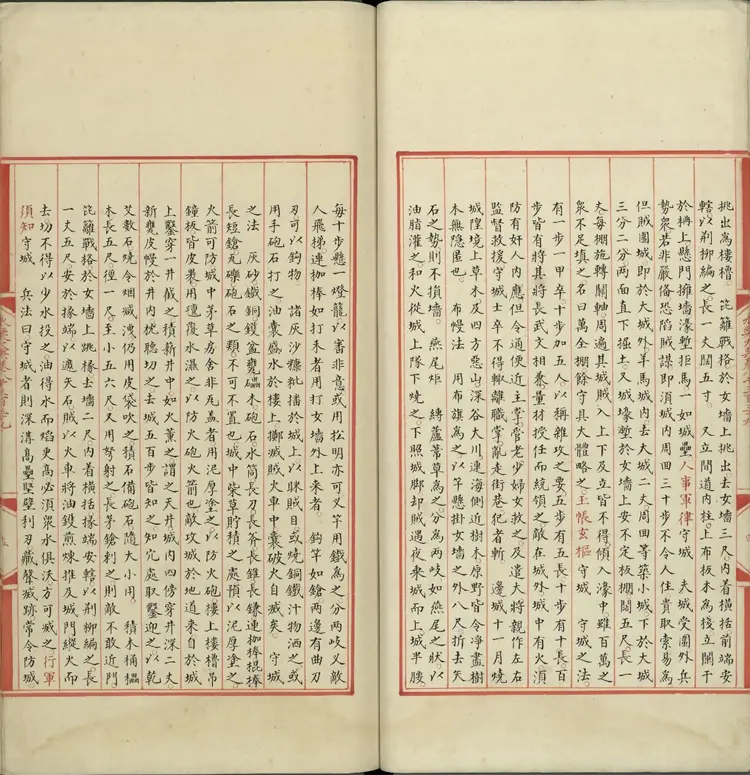 挑出為樓櫓。 笓籬戰格於女墻上挑出去女墻三尺內着橫括前端安
轄以荊柳編之。長一丈闊五寸。 又立閒道內柱。上布板木為棧立闌干
於栴上懸門擁墻濠塹拒馬一如城壘人事軍律守城 夫城受圍外兵
勢衆若非嚴俻恐䧟賊謀即湏城內周四三十步不令人住貴取索易為
但賊圍城即於大城外羊馬城內去大城二丈周四等築小城下於大城
三分二分兩面直下掘土。又城壕塹於女墻上安不定板棚闊五尺長一
丈每棚施轉關軸。周遍其城賊入上下及立皆不得傾入濠中雖百萬之
衆不足填之名曰萬全棚餘守具大體略之玉帳玄樞 守城 守城之法。
有一步一甲卒。十步加五人。以稱雜攻之要五步有五長十步有十長百
步皆有將其將長武文相兼量材授任而統領之敵在城外城中有火湏
防有奸人內應但令通便近主掌管老少婦女救之及遣大將親作左右
監督救援守城士卒不得輙離職掌亂走街巷犯者斬 邊城十一月燒
城隍境上草木及四方惡山深谷大川連海側近樹木原野皆令淨盡樹
木無隱匿也。 布幔法 用布旗為之以竿懸掛女墻之外八尺折去矢
石之勢則不損墻。 燕尾炬 縛蘆葦草為之分為兩岐如燕尾之狀。以
油脂灌之和火從城上隊下燒之。下照城脚却賊遇夜来城而上城半腰
每十步懸一燈籠以審非意或用松明亦可又竿用鐵為之分兩岐又敵
人飛梯連枷棒如打禾者用打女墻外上来者。 鈎竿如鎗兩邊有曲刀
刃可以鈎物。 諸灰沙糠粃播於城上以眯賊目或燒銅鐵汁物洒之或
用手砲石打之油囊盛水於樓上擲城賊火車中囊破火自滅矣。 守城
之法 灰砂鐵銅鑊盆甕礧木砲石水筒長刀長斧長錐長鎌連枷棒棍棒
長短鎗瓦礫砲石之類。不可不置也城中柴草貯積之處預以泥厚塗之
火箭可防城中茅草房舍非瓦葢者用泥厚塗之以防火砲樓上樓櫓吊
鐘板皆皮裹用壇覆水濕之以防火砲火箭也敵攻城於地道来自於城
上鑿穿一井截之積薪井中如火薰之謂之天井城內四傍穿井深二丈
新甕皮幔於井內抗聽切之去城五百步皆知之知穴處取鑿迎之以乾
艾數石燒令烟滅洩仍用皮袋吹之積石備砲石隨大小用。 積木桶檑
木長五尺徑一尺至小五六尺。又用弩射之長茅鎗刺之則敵不敢近門
笓籬戰格於女墻上跳椽去墻二尺內着橫括椽端安轄以荊柳編之長
一丈五尺安於椽端以遮矢石。賊以火車將油鑊煎煉推及城門縱火而
去切不得以少水投之。油得水而焰更高必湏衆水俱沃方可滅之行軍
須知守城 兵法曰守城者則深溝高壘堅壁利刃藏聲滅跡常令防城